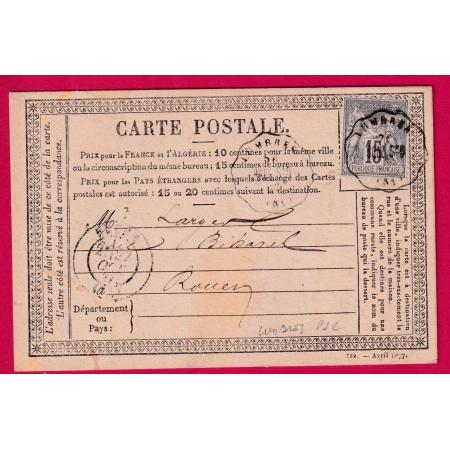 CARTE POSTALE.
PRIX pour la FRANCE et l'ALGÉRIE: 10 centimes pour la même ville
ou la circonscription du même bureau; 15 centimes de bureau à bureau.
PRIX POUR LES PAYS ÉTRANGERS avec lesquels l'échange des Cartes
postales est autorisé: 15 ou 20 centimes suivant la destination.
POSTE
15
REPUBLIQUE FRANÇAISE
L'adresse seule doit être mise de ce côté de la carte.
L'autre côté est réservé à la correspondance.
Lorsque la carte est à destination
d'une ville, indiquer très-exactement la
rue et le numéro de la maison.
Quand elle est destinée pour une
commune rurale, indiquer le nom du
bureau de poste qui la dessert.
Rouen
Département
ou
Pays:
729. — Avril 1877.